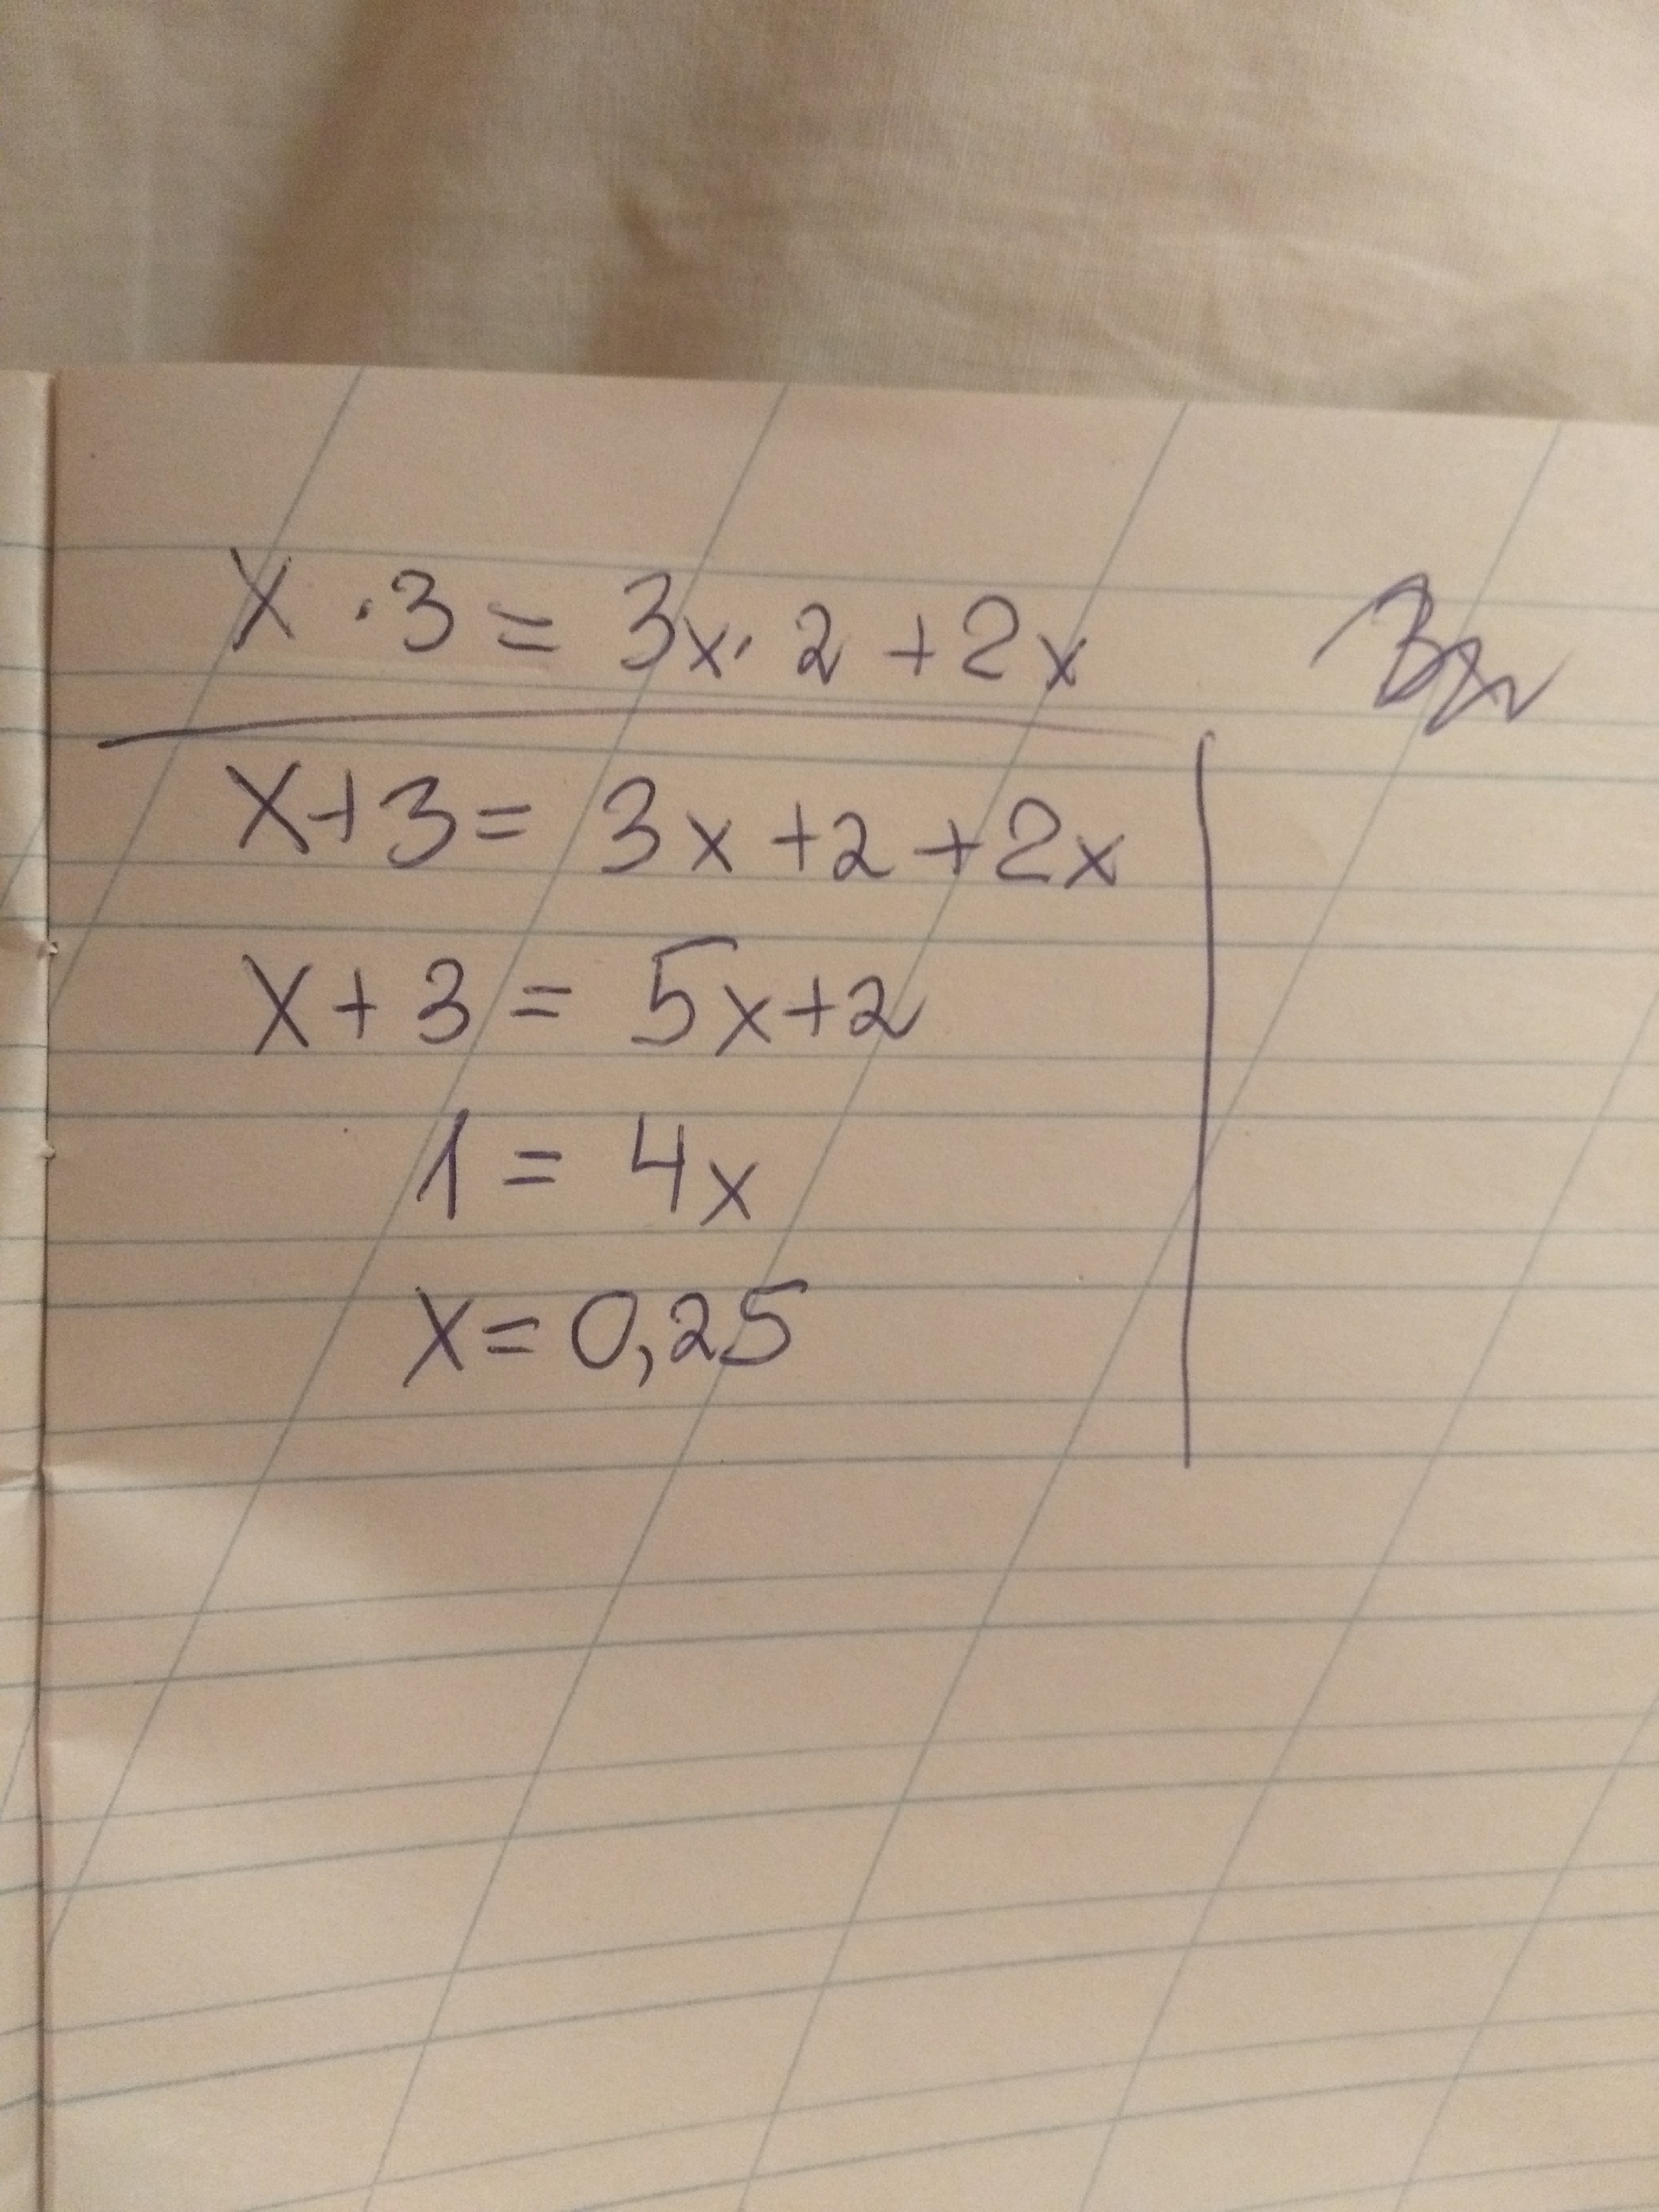 x · 3 = 3x · 2 + 2x
x + 3 = 3x + 2 + 2x
x + 3 = 5x + 2
1 = 4x
x = 0,25